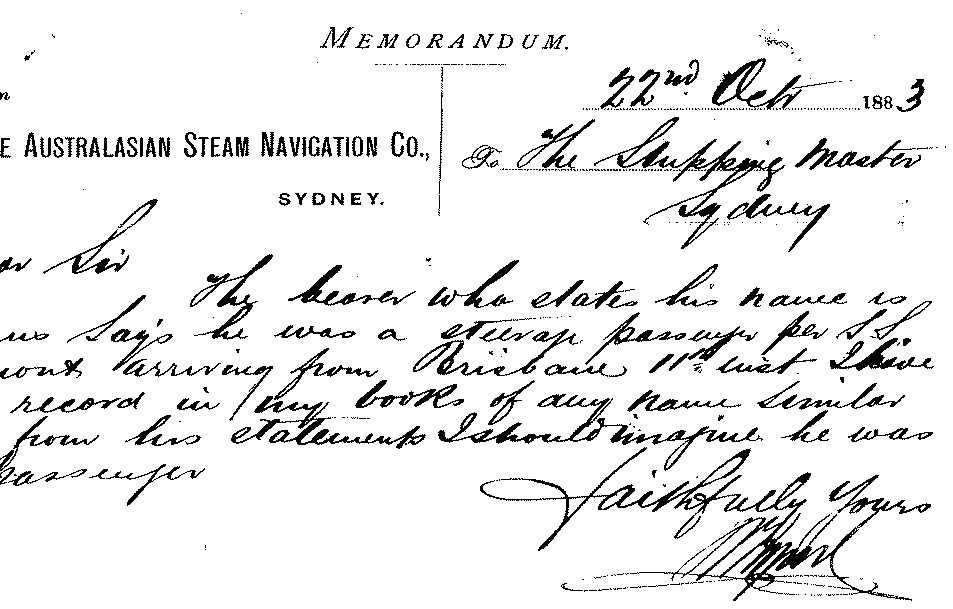 MEMORANDUM.
22nd Oct 1883
E AUSTRALASIAN STEAM NAVIGATION CO.,
To The Shipping Master
SYDNEY.
Sydney
ar Sir
The bearer who states his name is
us says he was a steerage passenger per S.S.
mont arriving from Brisbane 11th inst I have
record in my books of any name similar
from his statements I should imagine he was
passenger
Faithfully Yours